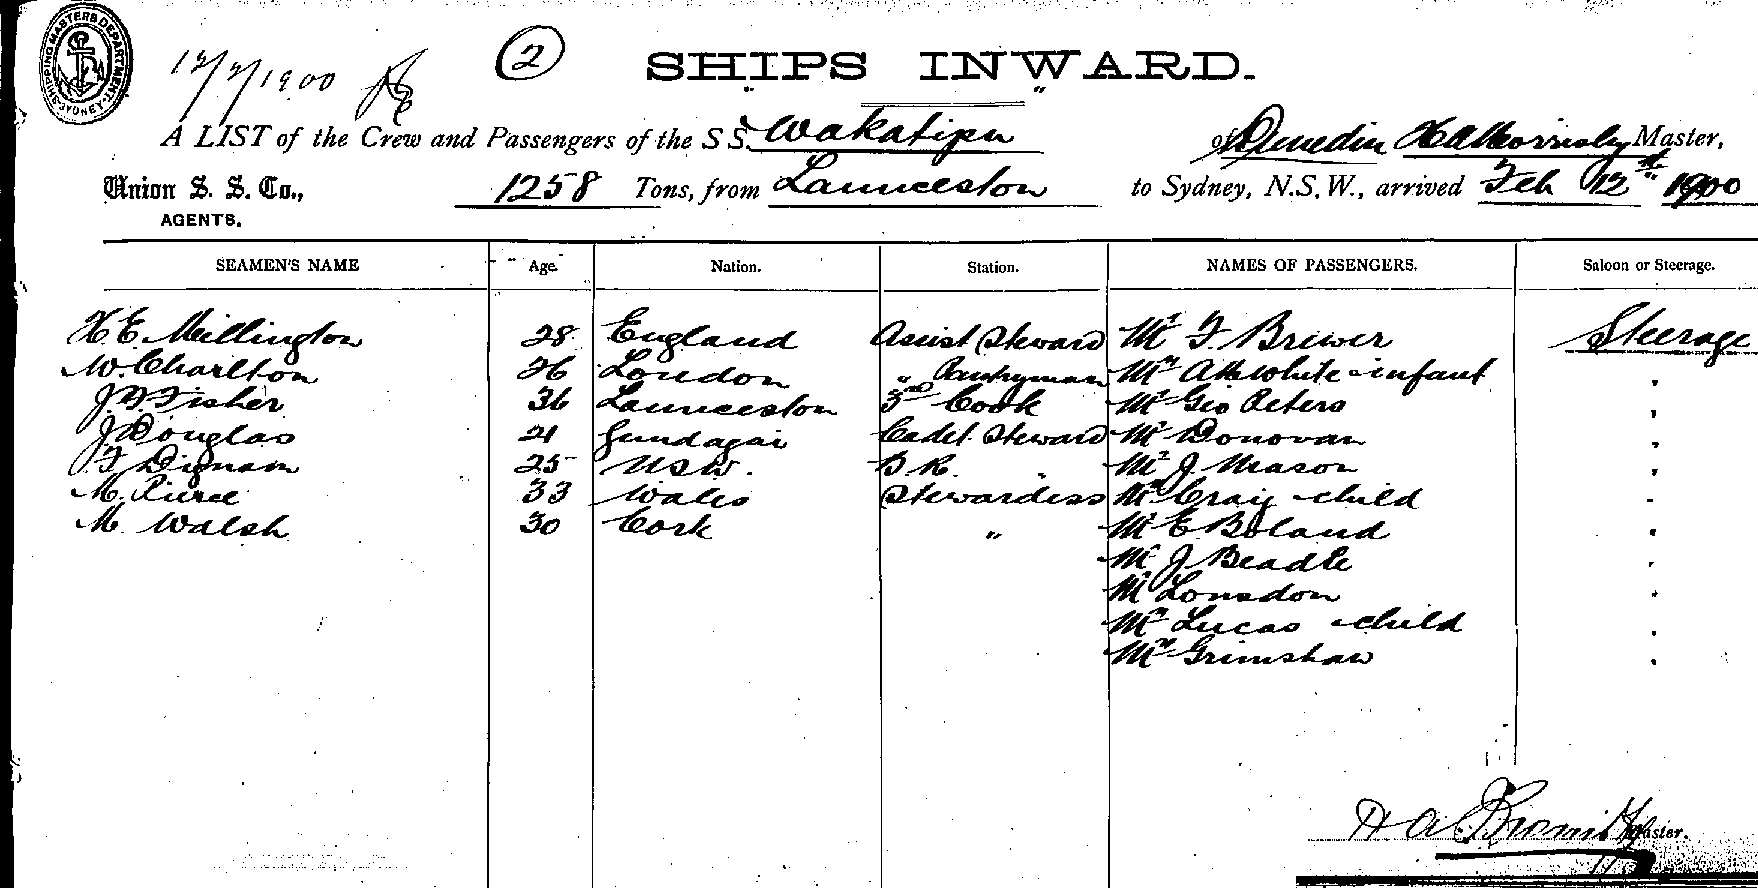 SHIPPING MASTERS DEPARTMENT. SYDNEY
12/2/1900
2
SHIPS INWARD.
A LIST of the Crew and Passengers of the S S. Wakatipu of Dunedin Master,
Union S. S. Co., 1258 Tons, from Launceston to Sydney, N.S.W., arrived Feb 12th 1900
AGENTS.
SEAMEN'S NAME Age. Nation. Station. NAMES OF PASSENGERS. Saloon or Steerage.
H E Millington 28 England Assist Steward Mr F. Brewer Steerage
W. Charlton 26 London " Pantryman Mrs White & infant "
J Fisher 36 Launceston 3rd Cook Mr Geo Peters "
J Douglas 21 Gundagai Cadet Steward Mr Donovan "
F Dignam 25 NSW. B.R. " Mr J. Mason "
M. Pierce 33 Wales Stewardess Mrs Craig & child "
M Walsh 30 Cork " Mr E Boland "
Mr J Beadle "
Mr Lonsdon "
Mrs Lucas & child "
Mrs Grimshaw "
H A Master.